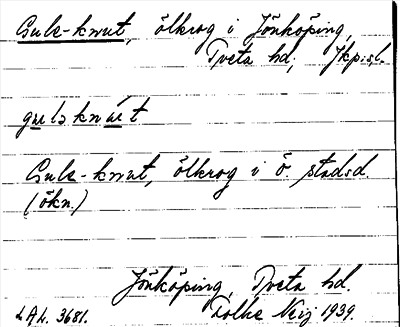 Guls-knut, ölkrog i Jönköping,
Tveta hd, Jkp:s l.
gu̲lsknu̲t
Guls-knut, ölkrog i ö. stadsd.
(ökn.)
Jönköping, Tveta hd.
LAL. 3681. Folke Neij 1939.